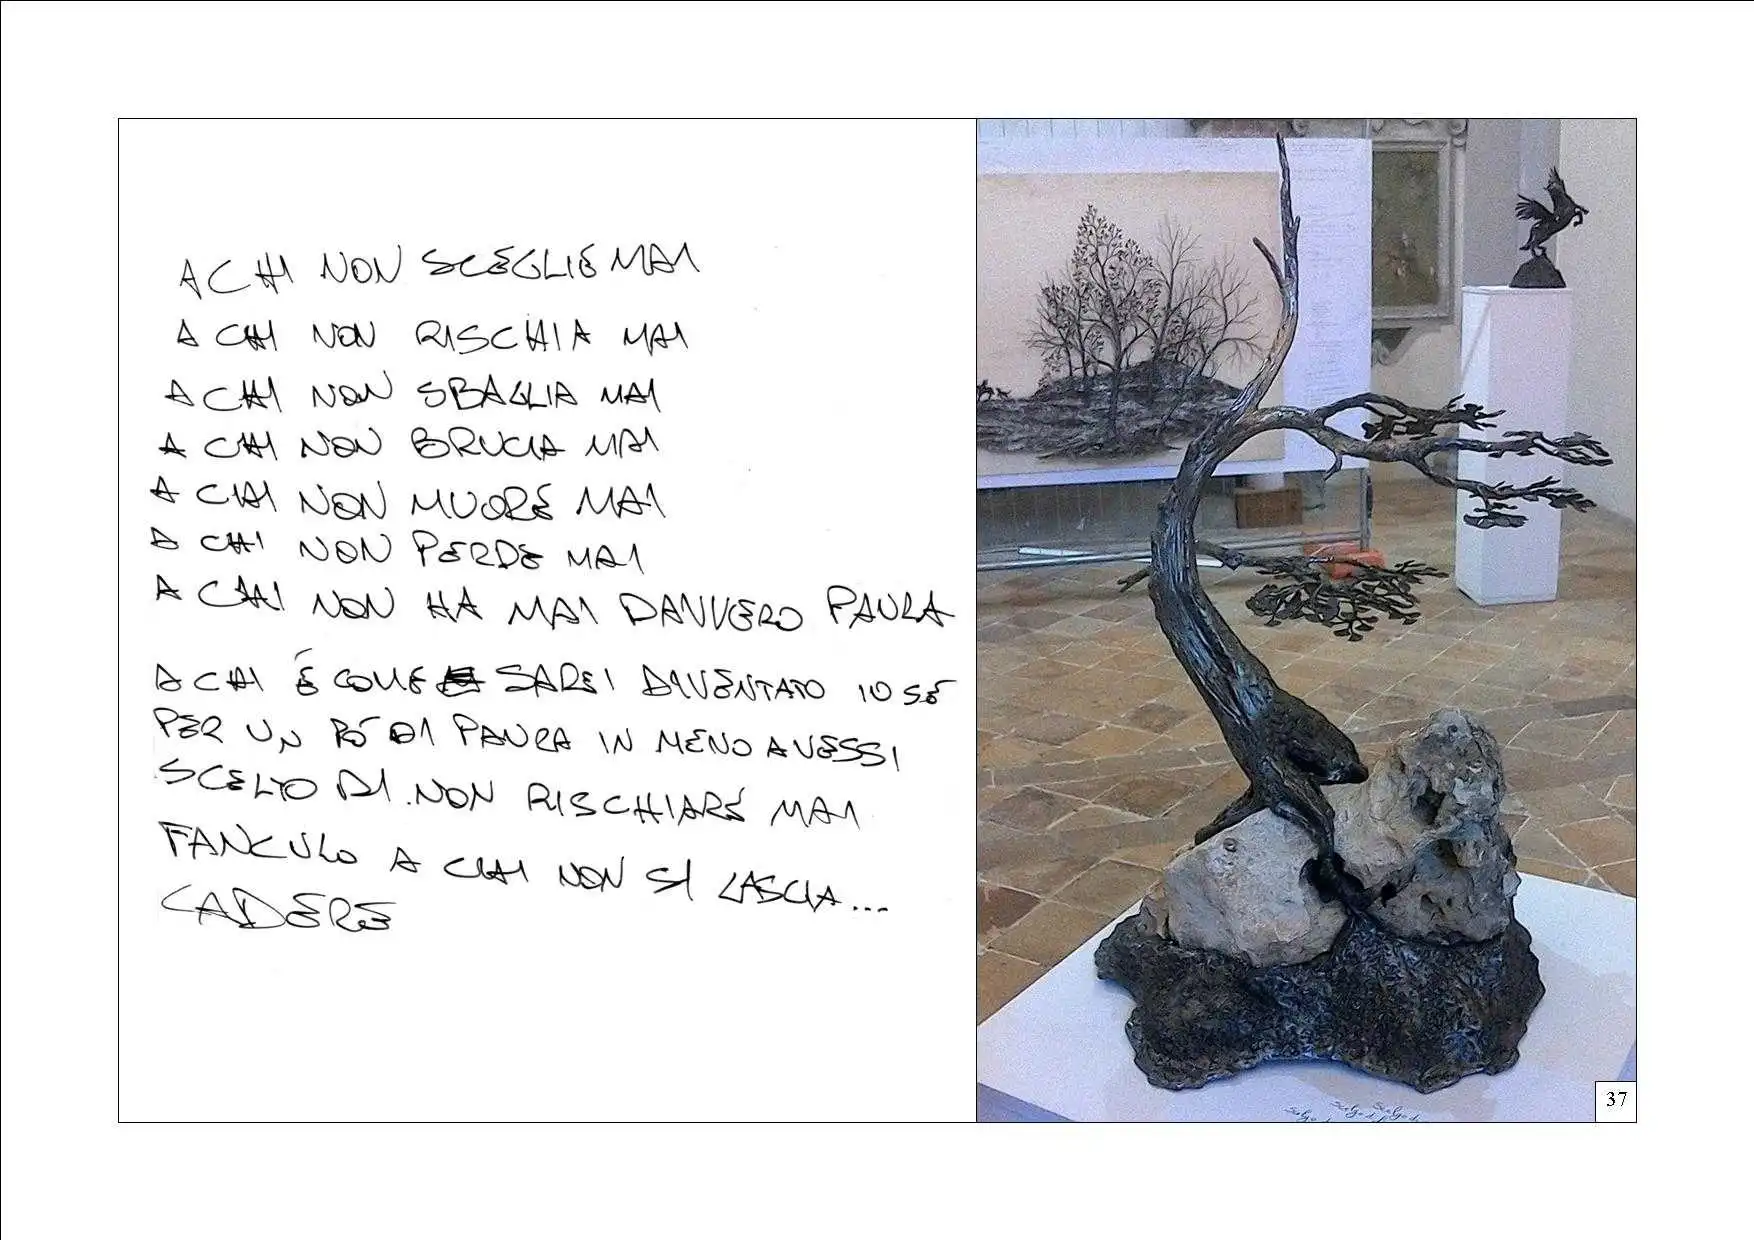 A CHI NON SCEGLIE MAI
A CHI NON RISCHIA MAI
A CHI NON SBAGLIA MAI
A CHI NON BRUCIA MAI
A CHI NON MUORE MAI
A CHI NON PERDE MAI
A CHI NON HA MAI DAVVERO PAURA
A CHI É COME SAREI DIVENTATO IO SE
PER UN PÓ DI PAURA IN MENO AVESSI
SCELTO DI NON RISCHIARE MAI
FANCULO A CHI NON SI LASCIA...
CADERE
37